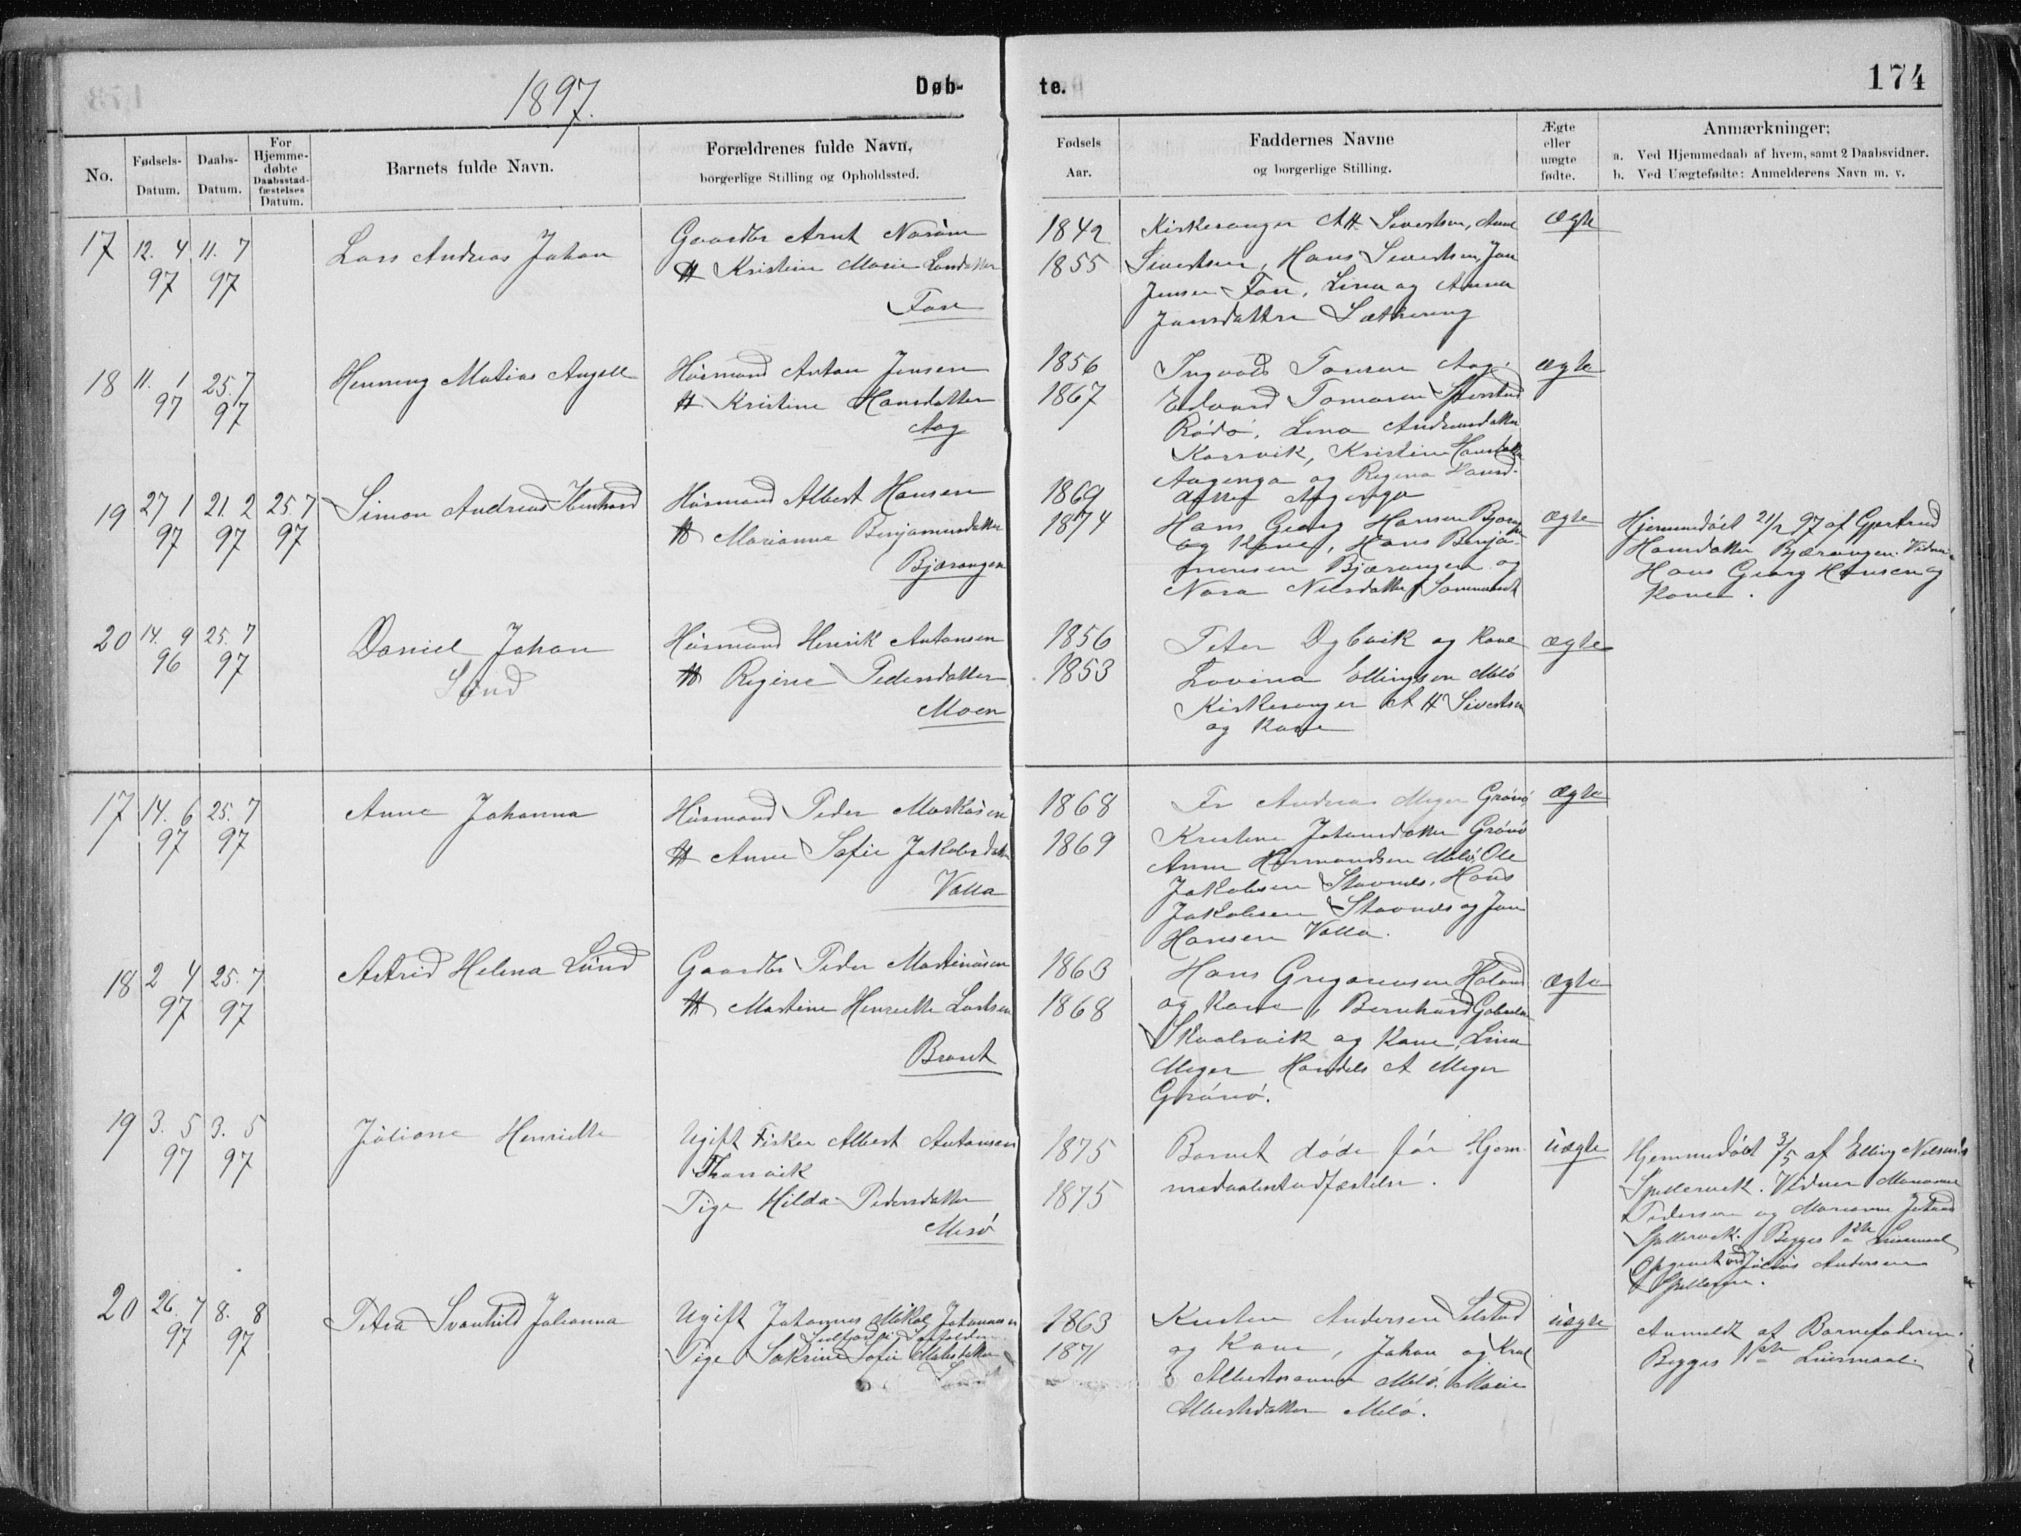 1897.
Døb-
te.
174
No.
Fødsels-
Datum.
Daabs-
Datum.
For
Hjemme-
døbte
Daabsstad-
fæstelses
Datum.
Barnets fulde Navn.
Forældrenes fulde Navn,
borgerlige Stilling og Opholdssted.
Fødsels
Aar.
Faddernes Navne
og borgerlige Stilling.
Ægte
eller
uægte
fødte.
Anmærkninger;
a. Ved Hjemmedaab af hvem, samt 2 Daabsvidner.
b. Ved Uægtefødte: Anmelderens Navn m. v.
17 12. 4 11. 7
97 97
Lars Andreas Johan
Gaardbr Arnt
H Kristine Marie
Fore
1842
1855
Kirkesanger A H Sivertsen, Anne
Sivertsen, Hans Sivertsen, Jan
Jensen Fore, Lina og Anna
Jansdattre
ægte
18 11. 1 25. 7
97 97
Henning Matias Angell
Húsmand Anton Jensen
H Kristine Hansdatter
Aag
1856
1867
Ingvald Aag
Edvard Tomasen
Rødø, Lina Andreasdatter
Korsvik, Kristine Hansdatter
Aagenga og Regina Hansd-
attre Aagenga
ægte
19 27 1 21. 2 25. 7
97 97 97
Simon Andreas
Húsmand Albert Hansen
H Marianne Benjaminsdatter
Bjærangen
1869
1874
Hans Georg Hansen
og Kone, Hans Benja-
minsen Bjærangen og
Nora Nilsdatter
ægte
Hjemmedøbt 21/2 97 af Gjertrud
Hansdatter Bjærangen. Vidner:
Hans Georg Hansen og
Kone.
20 14. 9 25. 7
96 97
Daniel Johan
Húsmand Henrik Antonsen
H Regine Pedersdatter
Moen
1856
1853
Peter Dybvik og Kone
Lovina Ellingsen Melø
Kirkesanger A H Sivertsen
og Kone
ægte
17 14. 6 25. 7
97 97
Anne Johanna
Húsmand Peder Markúsen
H Anne Sofie Jakobsdatter
Valla
1868
1869
Fr Andrea Meyer Grønø
Kristine Johansdatter Grønø
Anna Hermandsen Melø, Ole
Jakobsen Stavnes, Hans
Jakobsen Stavnes og Jan
Hansen Valla.
ægte
18 2 4 25. 7
97 97
Astrid Helena Lúnd
Gaardbr Peder Martinúsen
H Martine Henriette
Brant
1863
1868
Hans Gregoriusen
og Kone, Bernhard
Skaalsvik og Kone, Lina
Meyer Handels A Meyer
Grønø.
ægte
19 3. 5 3. 5
97 97
Júliane Henriette
Ugift Fisker Albert Antonsen
Pige Hilda Pedersdatter
Mesø
1875
1875
Barnet døde før Hjem-
medaabstadfæstelse.
úægte
Hjemmedøbt 3/5 af Elling Nilsen
Vidner Marianne
Pedersen og Marianne
Begges 1ste Leiermaal
Opgivet ved Júliús Andersen
20 26. 7 8. 8
97 97
Petra Svanhild Johanna
Ugift Johannes Mikal Johannesen
Pige Sofie
1863
1871
Kristen Andersen Selstad
og Kone, Johan og
Melø. Marie
Albertsdatter Melø.
úægte
Anmeldt af Barnefaderen.
Begges 1ste Leiermaal.